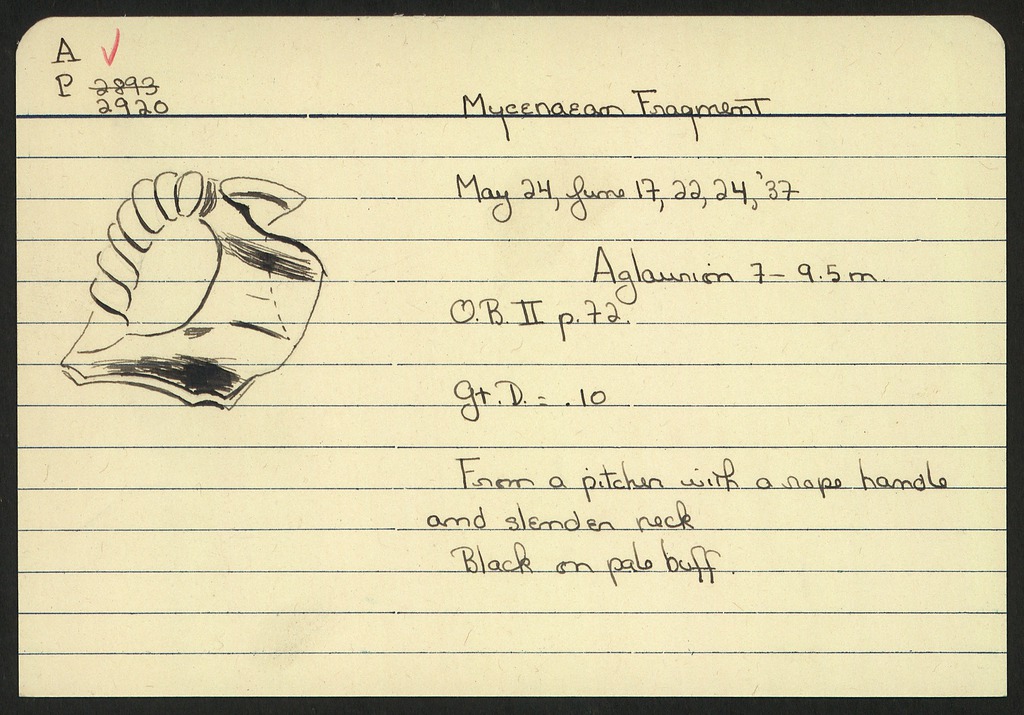 A ✓
P 2893
2920
Mycenaean Fragment
May 24, June 17, 22, 24, '37
Aglaurion 7 - 9.5 m.
O.B. II p. 72.
Gt. D. = .10
From a pitcher with a rope handle
and slender neck
Black on pale buff.